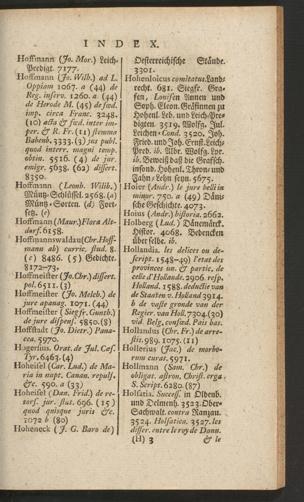 INDEX.
Hoffmann (Jo. Mor.) Leich-
Predigt. 7177.
Hoffmann (Jo. Wilh.) ad L.
Oppiam 1067. a (44) de
Reg. inferv. 1260. a (44)
de Herode M. (45) de sued.
imp. circa Franc. 3248.
(10) acta & sued. inter im-
per. & R. Fr. (11) stemma
Babenb. 3333. (3) jus publ.
quod interr. magni temp.
obtin. 5516. (4) de jur.
emigr. 5638. (62) differt.
8350.
Hoffmann (Leonh. Willib.)
Müntz-Schlüssel. 2568. (a)
Müntz-Sorten. (d) Fort-
setz. (e)
Hoffmann (Maur.) Flora Alt-
dorf. 6158.
Hoffmannswaldau (Chr. Hoff-
mann ab) curric. stud. 8.
(e) 8486. (5) Gedichte.
8172-73.
Hoffmeister (Jo. Chr.) differt.
pol. 6511. (3)
Hoffmeister (Jo. Melch.) de
jure apanag. 1071. (44)
Hoffmeister (Siegfr. Gunth.)
de jure dispens. 5850. (8)
Hoffstadt (Jo. Dietr.) Pana-
cea. 5970.
Hogersius. Orat. de Jul. Cæs.
Tyr. 6463. (4)
Hoheisel (Car. Lud.) de Ma-
ria in nopt. Canan. repuls.
&c. 590. a (33)
Hoheisel (Dan. Frid.) de re-
torf. jur. stut. 696. (15)
quod quisque juris &c.
1072 b (80)
Hoheneck (J. G. Baro de)
Oesterreichische Stände.
3301.
Hohenloicus comitatus. Lands
recht. 681. Siegfr. Gra-
fen, Lonisen Annen und
Soph. Eleon. Gräfinnen zu
Hohenl. Leb. und Leich-Pre-
digten 3519. Wolfg. Jul.
Leichen-Cond. 3520. Joh.
Fried. und Joh. Ernst. Leich-
Pred. ib. Albr. Wolfg. Lpr.
ib. Beweiß daß die Grafsch.
insond. Hohenl. Thron- und
Fahn-Lehn seyn. 5675.
Hoier (Andr.) de jure belli in
minor. 750. a (49) Däni-
sche Geschichte. 4073.
Hoius (Andr.) historia. 2662.
Holberg (Lud.) Dänemärck.
Histor. 4068. Bedencken
über selbe. ib.
Hollandia. les delices ou de-
script. 1548-49) l'etat des
provinces un. & partic. de
celle d'Hollande. 2906. resp.
Holland. 1588. deductie van
de Staaten v. Holland 3914.
de vaste gronde van der
Regier. van Holl. 7304. (30)
vid. Belg. confœd. Pais bas.
Hollandus (Chr. Fr.) de arre-
stis. 989. 1075. (11)
Hollerius (Jac.) de morbo-
rum curat. 5971.
Hollmann (Sam. Chr.) de
obligat. astron. Christi. erga
S. Script. 6280. (87)
Holsatia. Success. in Oldenb.
und Delmenh. 3523. Ober-
Sachwalt. contra Ranzau.
3524. Holsatica. 3527. les
differ. entre le roy de Dann.
(H) 3
& le